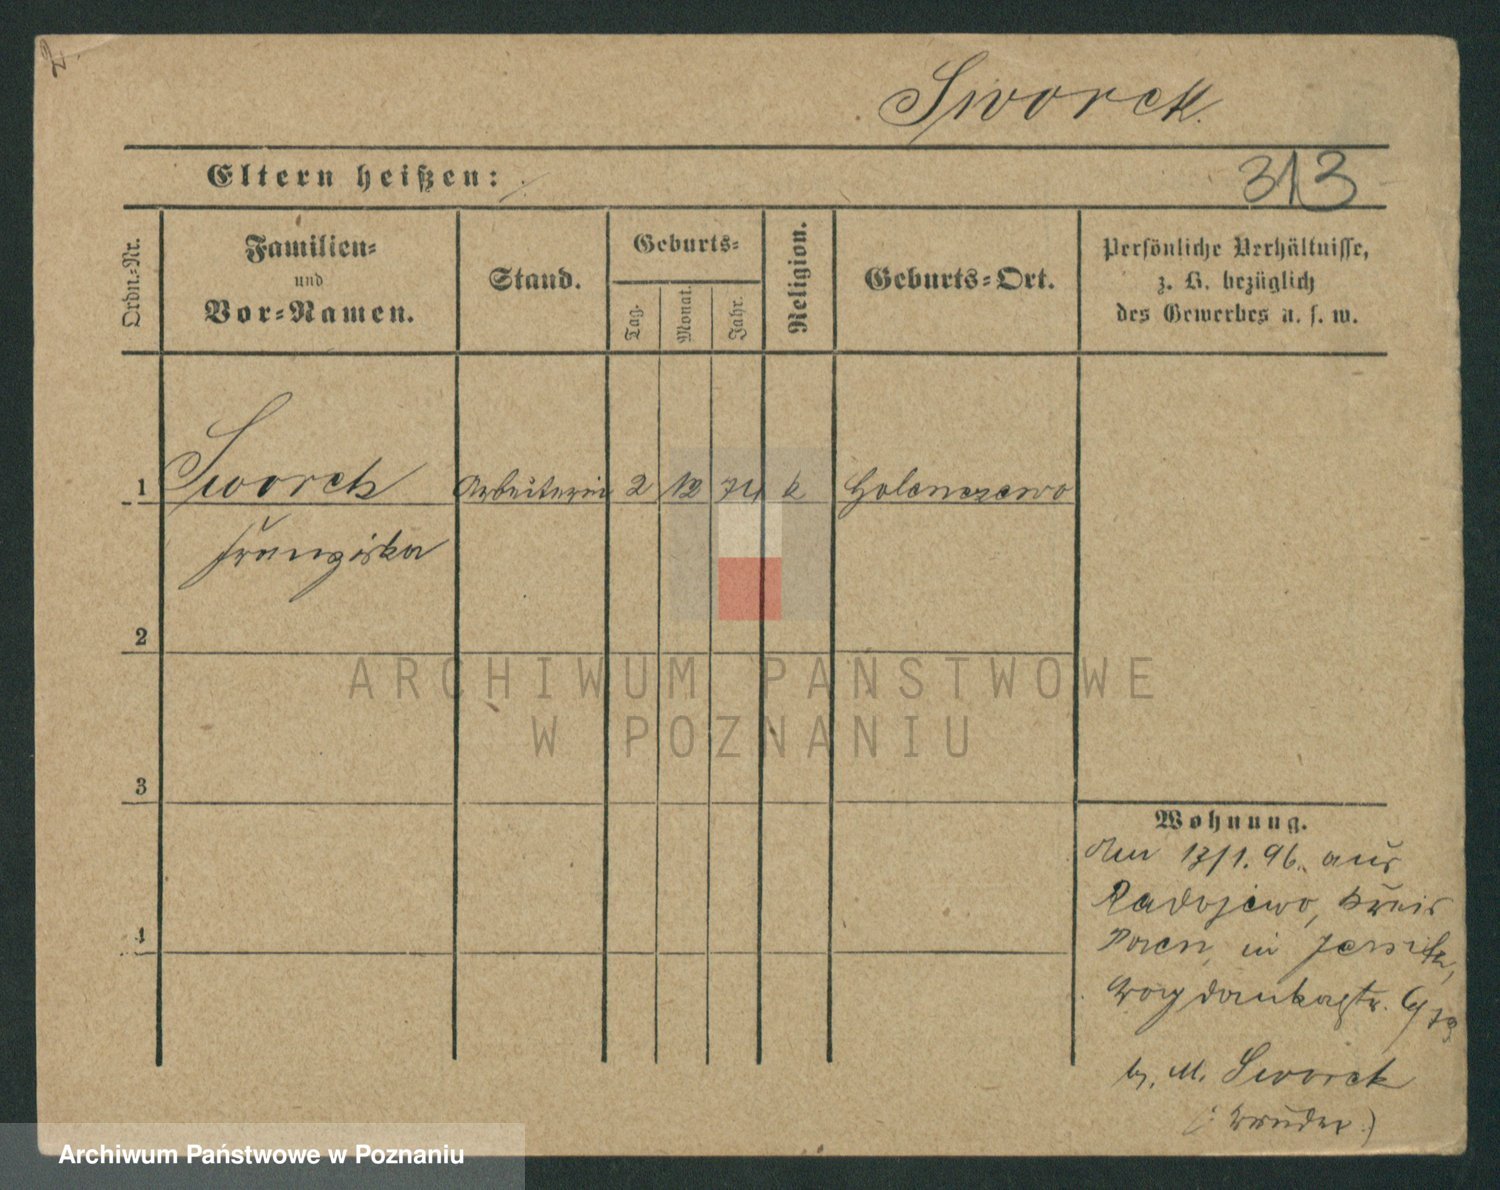 2.
Sworek
Eltern heißen:
313
Ordn.-Nr.
Familien-
und
Vor-Namen.
Stand.
Geburts-
Tag.
Monat.
Jahr.
Religion.
Geburts-Ort.
Persönliche Verhältnisse,
z. B. bezüglich
des Gewerbes u. s. w.
1 Sworek Arbeiterin 2 12 74 k Golenczewo
Franziska
2
ARCHIWUM PAŃSTWOWE
W POZNANIU
3
Wohnung.
Am 13/1. 96. aus
Radojewo, Kreis
Posen, in Jersitz,
Bogdankastr. 6/
4
b. M. Sworek
(: Bruder.)
Archiwum Państwowe w Poznaniu